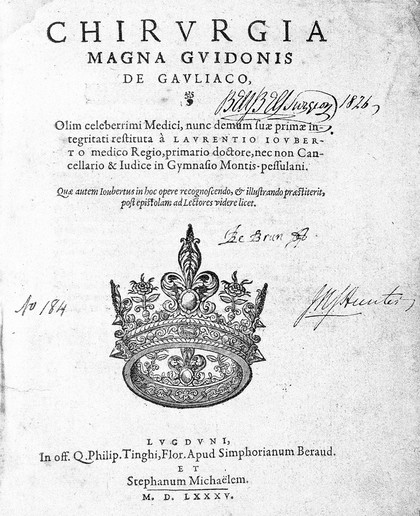 CHIRVRGIA
MAGNA GVIDONIS
DE GAVLIACO,
Surgeon 1826
Olim celeberrimi Medici, nunc demum suæ primæ in-
tegritati restituta à LAVRENTIO IOVBER-
TO medico Regio, primario doctore, nec non Can-
cellario & Iudice in Gymnasio Montis-pessulani.
Quæ autem Ioubertus in hoc opere recognoscendo, & illustrando præstiterit,
post epistolam ad Lectores videre licet.
De Brun
No 184
Hunter
LVGDVNI,
In off. Q. Philip. Tinghi, Flor. Apud Simphorianum Beraud.
ET
Stephanum Michaëlem.
M. D. LXXXV.